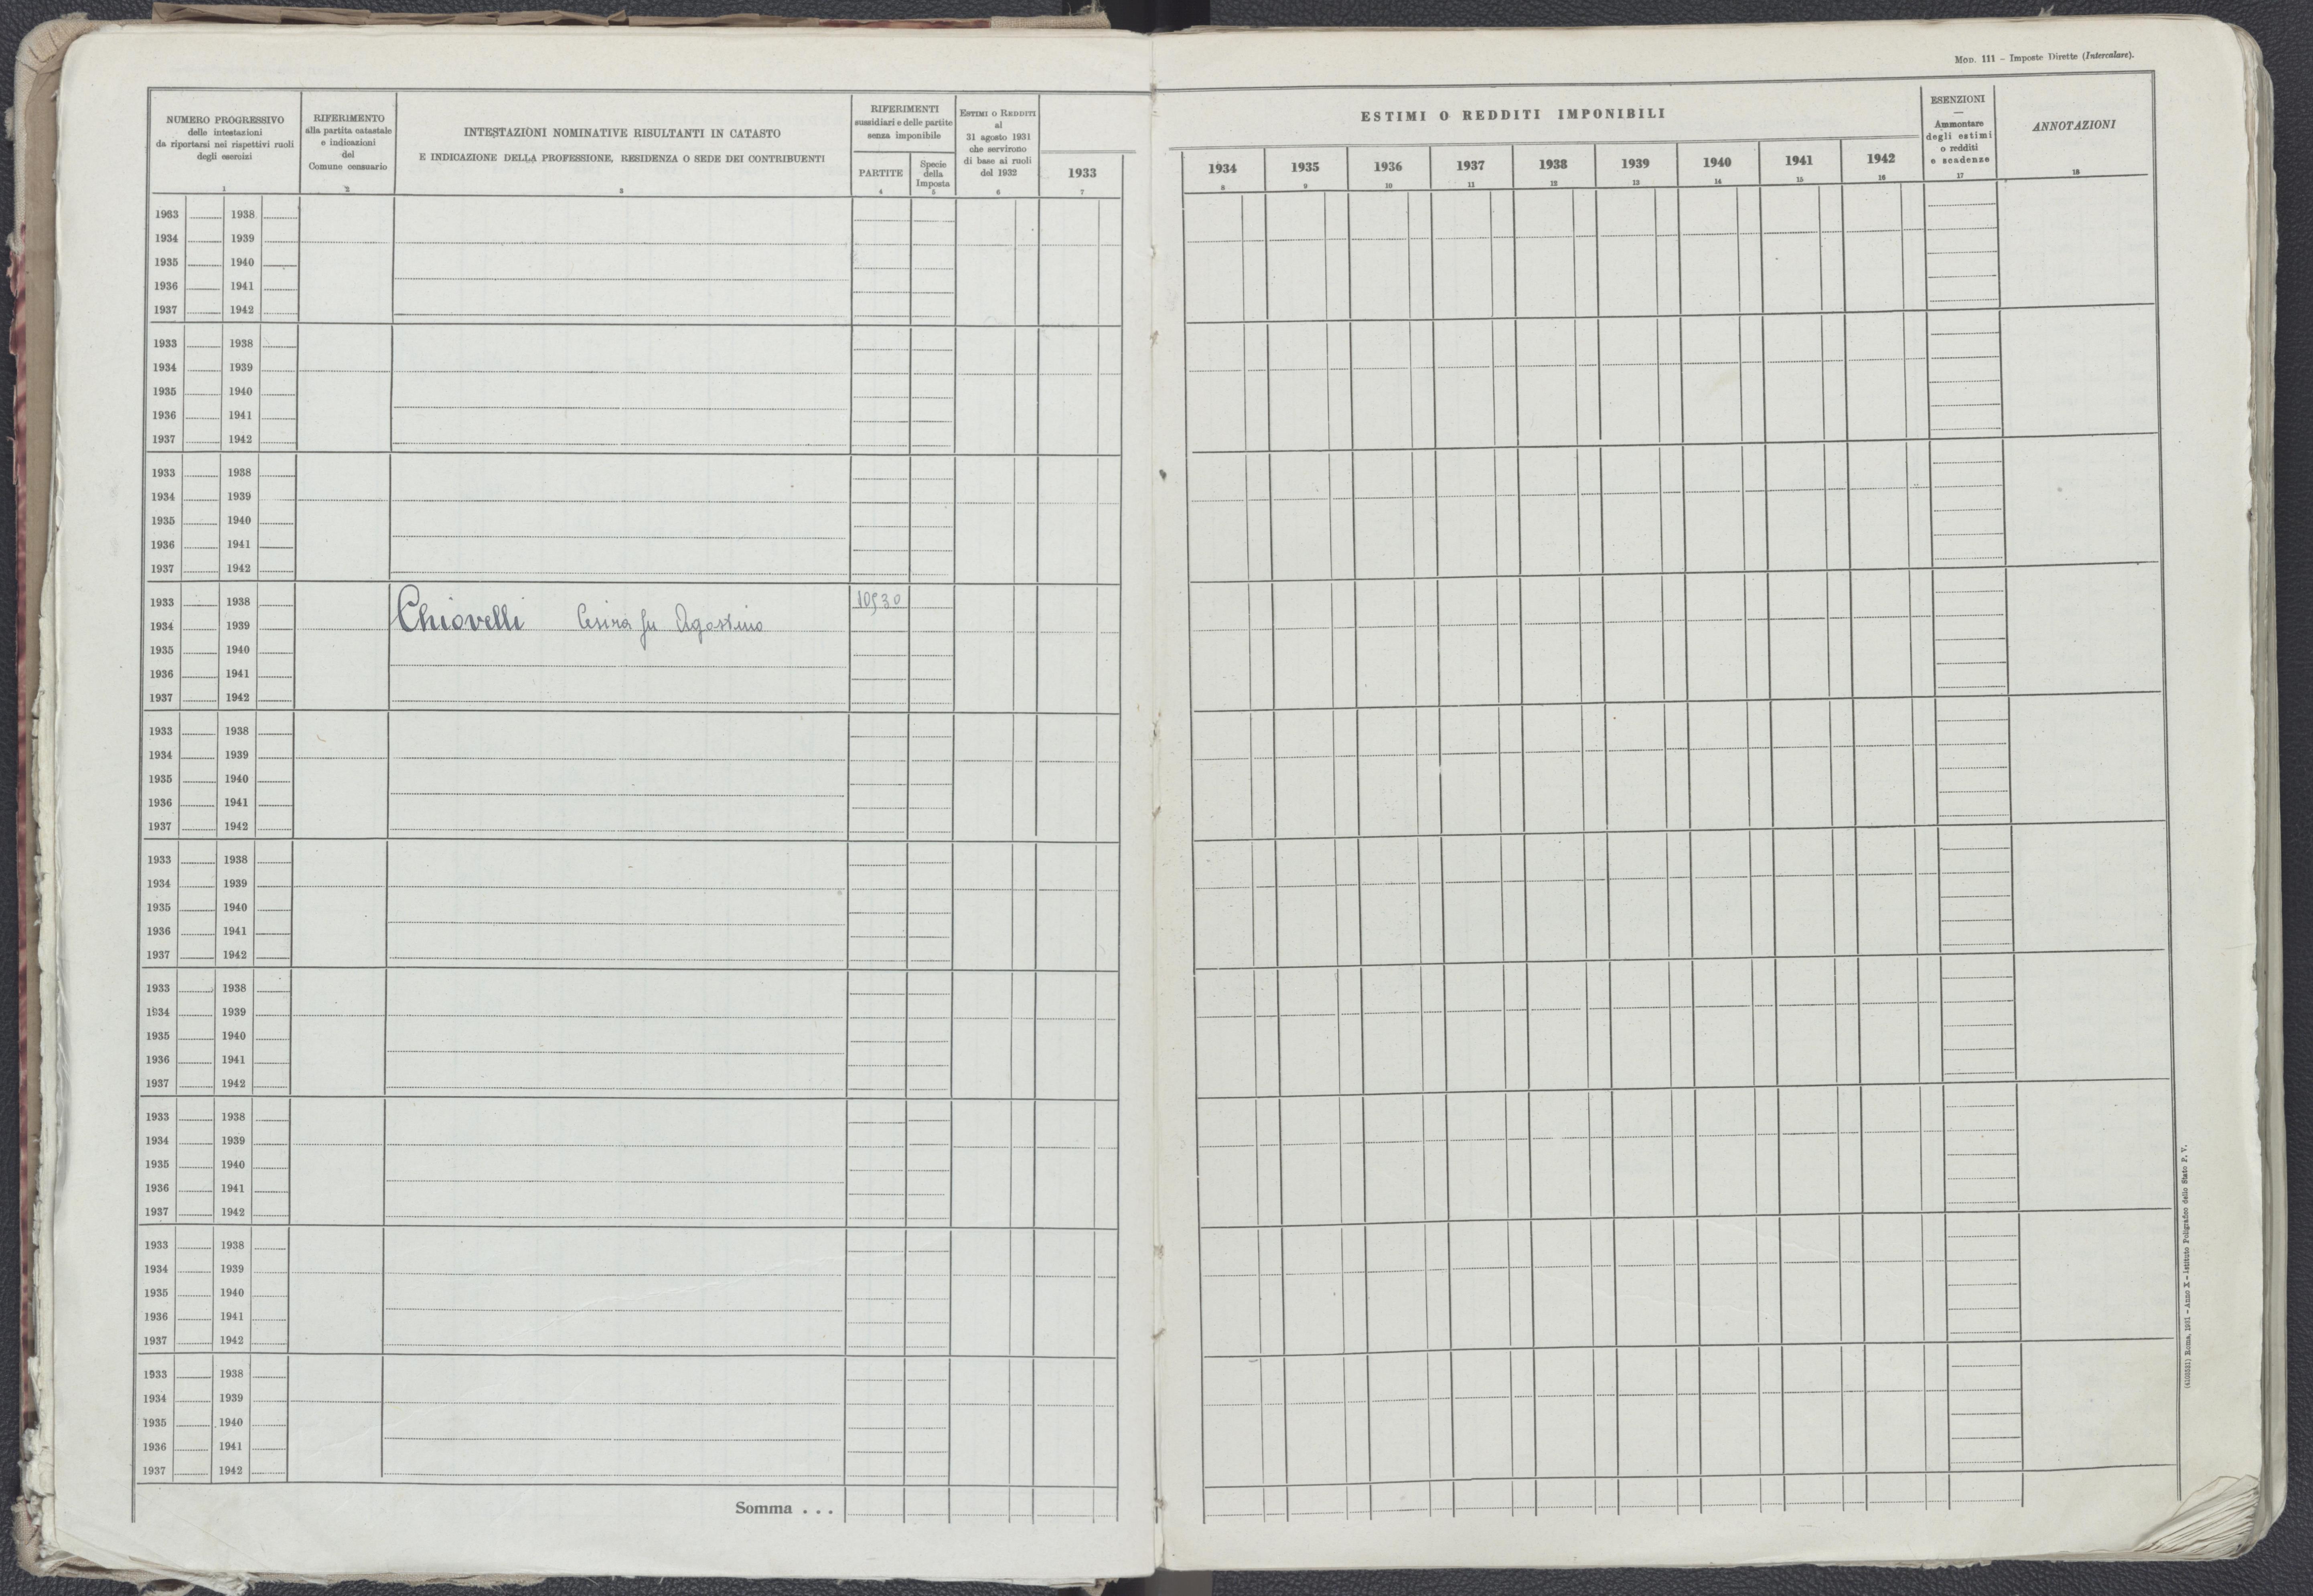 Mod. 111 – Imposte Dirette (Intercalare).
NUMERO PROGRESSIVO
delle intestazioni
da riportarsi nei rispettivi ruoli
degli esercizi
1
RIFERIMENTO
alla partita catastale
e indicazioni
del
Comune censuario
2
INTESTAZIONI NOMINATIVE RISULTANTI IN CATASTO
E INDICAZIONE DELLA PROFESSIONE, RESIDENZA O SEDE DEI CONTRIBUENTI
3
RIFERIMENTI
sussidiari e delle partite
senza imponibile
PARTITE
4
Specie
della
Imposta
5
Estimi o Redditi
al
31 agosto 1931
che servirono
di base ai ruoli
del 1932
6
1933
7
ESTIMI O REDDITI IMPONIBILI
1934 1935 1936 1937 1938 1939 1940 1941 1942
8 9 10 11 12 13 14 15 16
ESENZIONI
—
Ammontare
degli estimi
o redditi
e scadenze
17
ANNOTAZIONI
18
1933 1938
1934 1939
1935 1940
1936 1941
1937 1942
1933 1938
1934 1939
1935 1940
1936 1941
1937 1942
1933 1938
1934 1939
1935 1940
1936 1941
1937 1942
1933 1938 10530
1934 1939 Chiovelli Cesira fu Agostino
1935 1940
1936 1941
1937 1942
1933 1938
1934 1939
1935 1940
1936 1941
1937 1942
1933 1938
1934 1939
1935 1940
1936 1941
1937 1942
1933 1938
1934 1939
1935 1940
1936 1941
1937 1942
1933 1938
1934 1939
1935 1940
1936 1941
1937 1942
1933 1938
1934 1939
1935 1940
1936 1941
1937 1942
1933 1938
1934 1939
1935 1940
1936 1941
1937 1942
Somma . . .
Roma, 1931 – Anno X – Istituto Poligrafico dello Stato P. V.